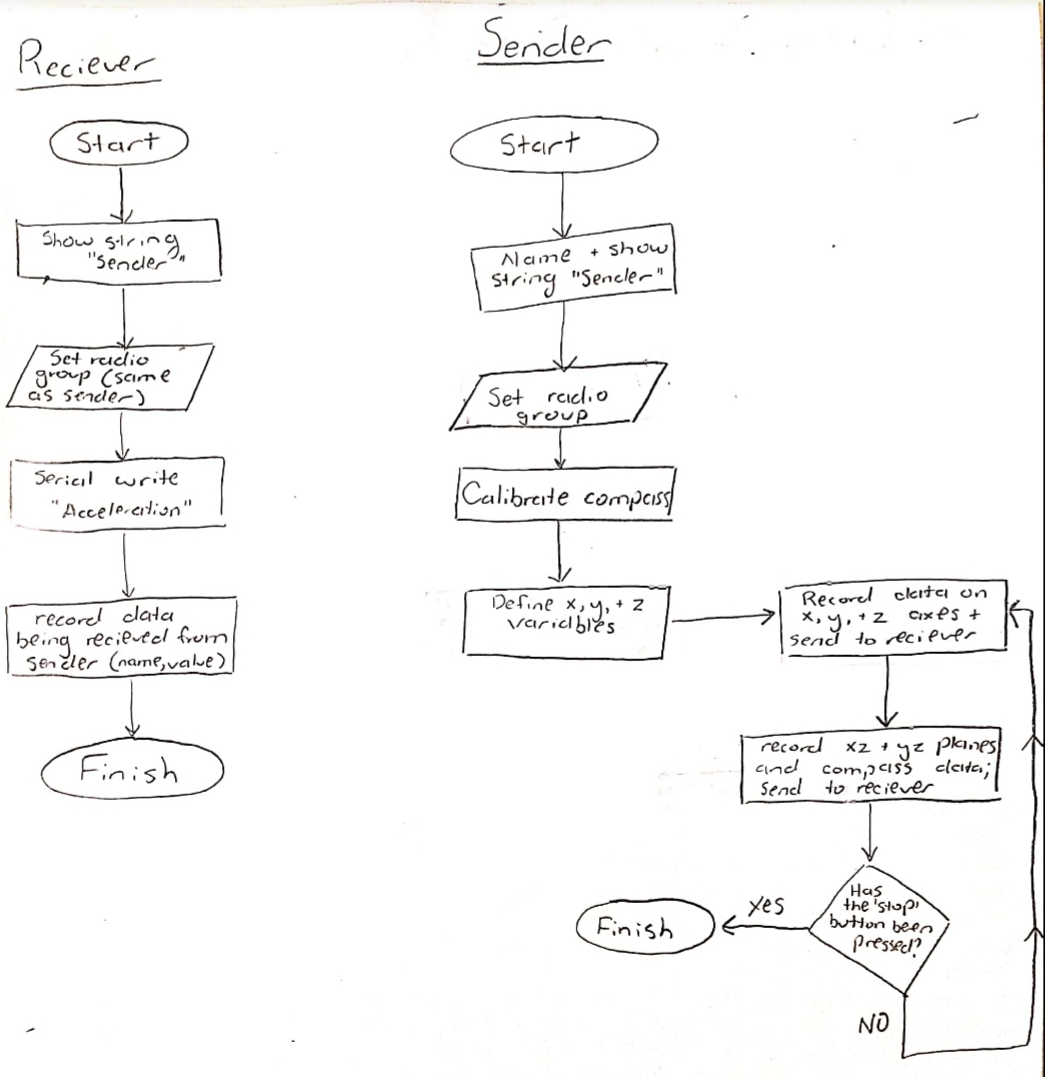 Reciever
Start
Show string
"Sender"
Set radio
group (same
as sender)
Serial write
"Acceleration"
record data
being recieved from
sender (name,value)
Finish
Sender
Start
Name + show
string "Sender"
Set radio
group
Calibrate compass
Define x, y, + z
variables
Record data on
x, y, + z axes +
send to reciever
record xz + yz planes
and compass data;
send to reciever
Has
the 'stop'
button been
pressed?
yes
Finish
NO